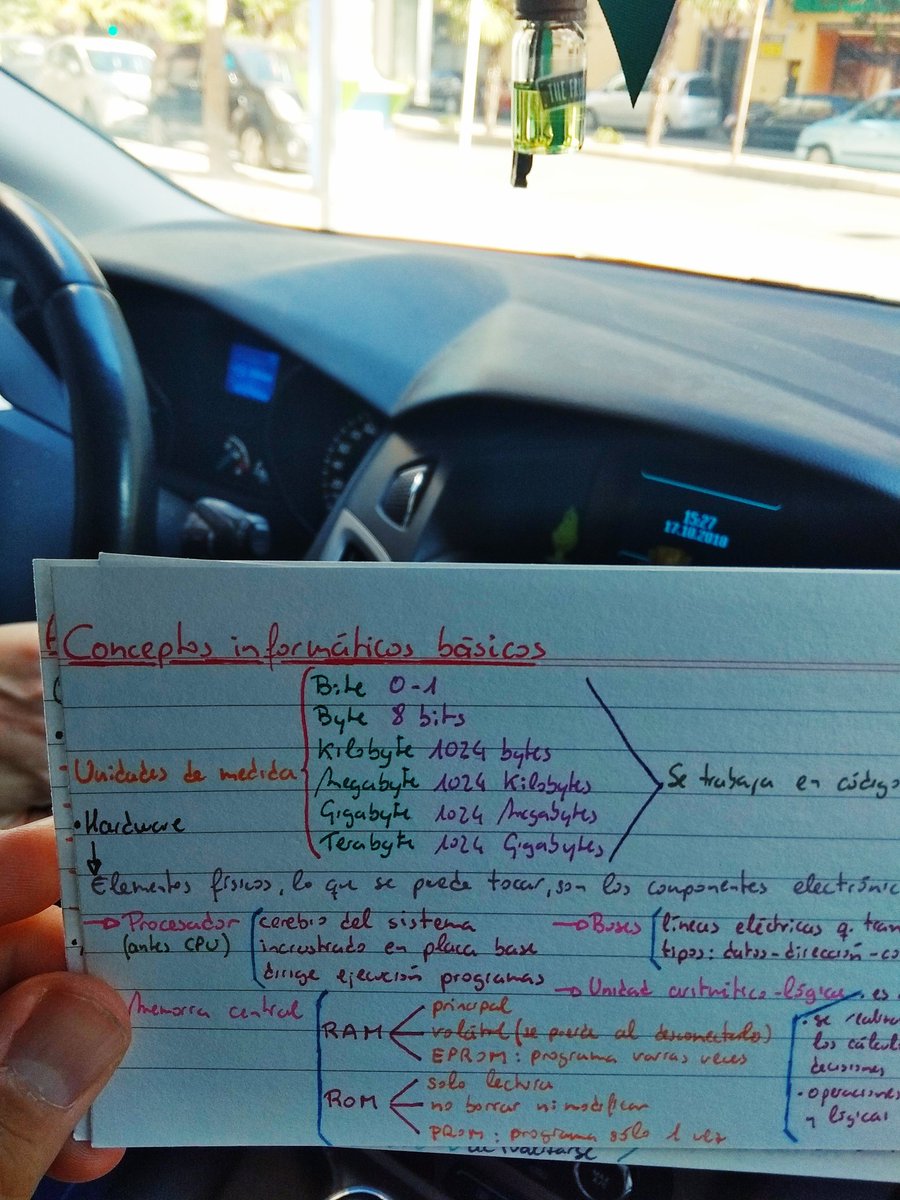 THE
15:27
17.10.2018
Conceptos informáticos básicos
Unidades de medida
Bite 0-1
Byte 8 bits
Kilobyte 1024 bytes
Megabyte 1024 Kilobytes
Gigabyte 1024 Megabytes
Terabyte 1024 Gigabytes
Se trabaja en código
• Hardware
Elementos físicos, lo que se puede tocar, son los componentes electrónic
Procesador
(antes CPU)
cerebro del sistema
incrustrado en placa base
dirige ejecución programas
Buses
líneas eléctricas q. tran
tipos: datos-dirección-co
Unidad aritmético-lógica es
• se realiza
los cálcul
decisiones
• operaciones
y lógicas
Memoria central
RAM
principal
volátil (se puede al desconectarlo)
EPROM: programa varias veces
ROM
solo lectura
no borrar ni modificar
PROM: programa sólo 1 vez